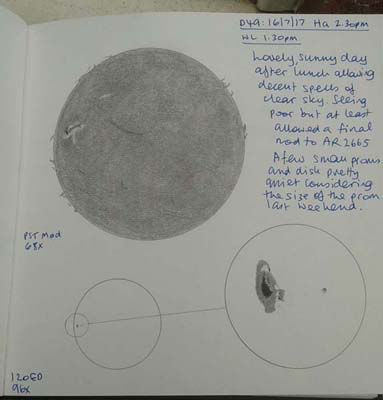 D49: 16/7/17 Ha 2.30pm
WL 1.30pm
Lovely, sunny day
after lunch allowing
decent spells of
clear sky. Seeing
poor but at least
allowed a final
nod to AR2665
A few small proms
and disk pretty
quiet considering
the size of the prom
last weekend.
PST Mod
68x
120ED
96x